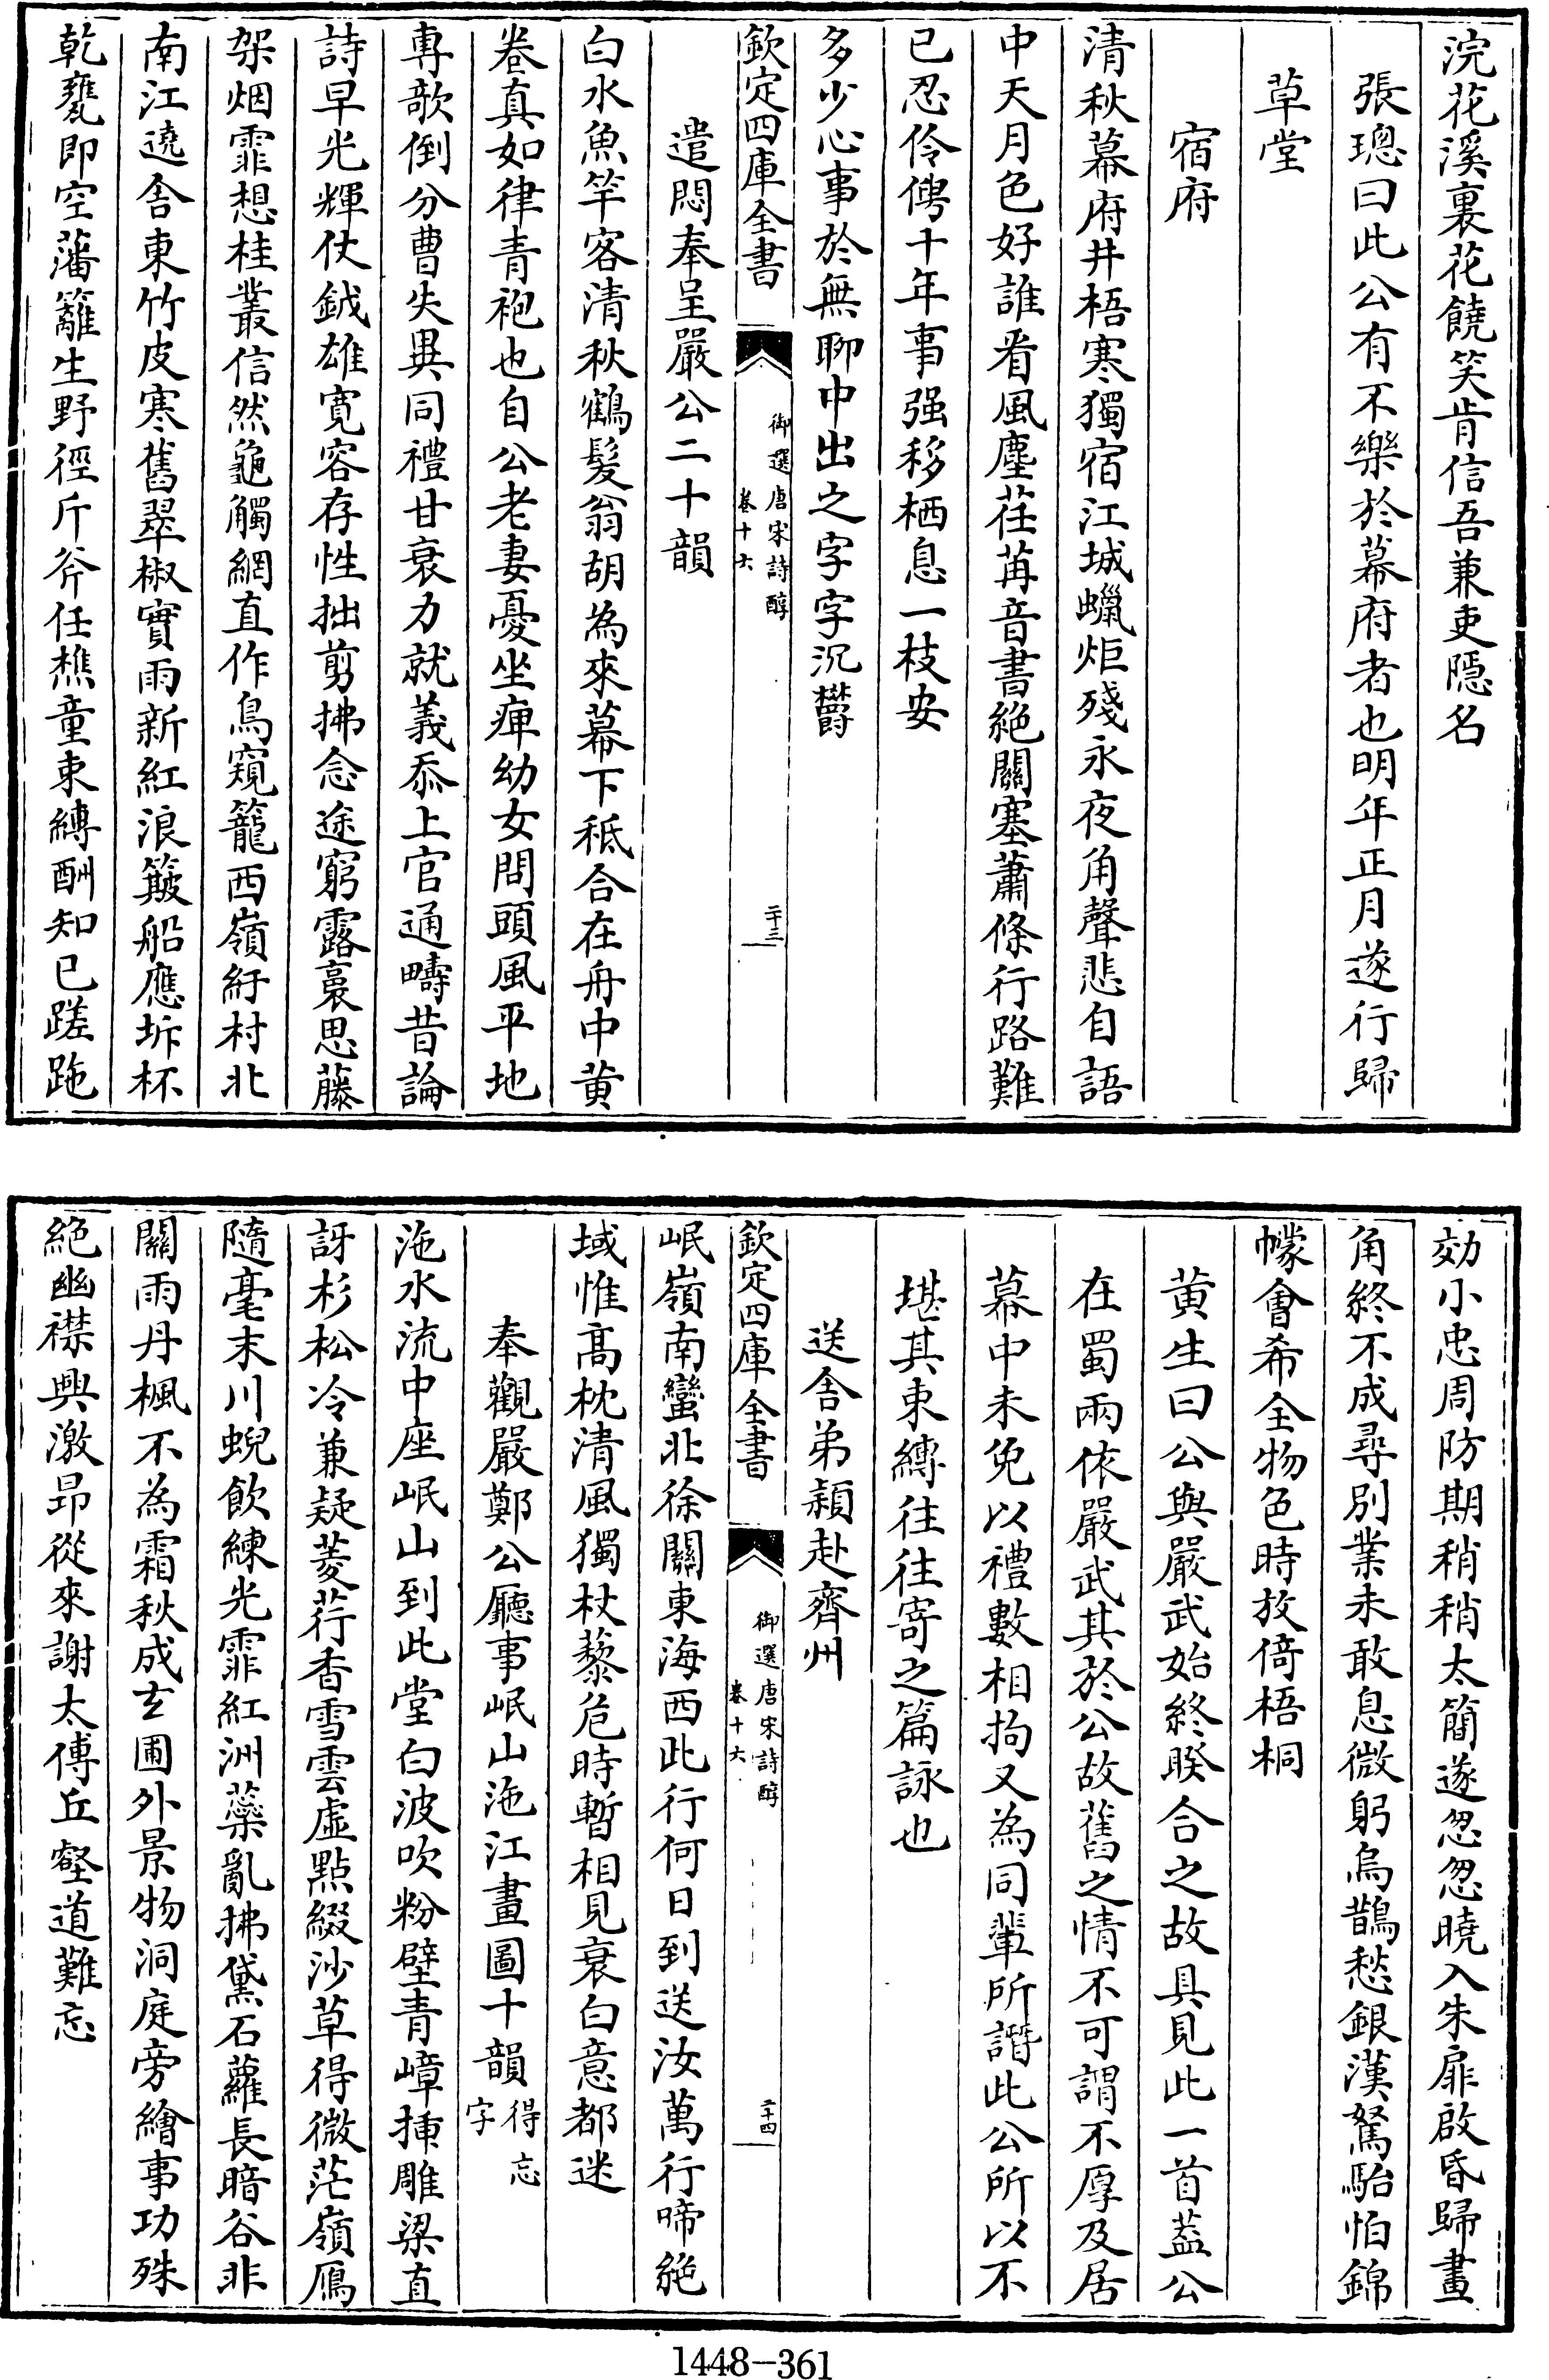 浣花溪裏花饒笑肯信吾兼吏隱名
張璁曰此公有不樂於幕府者也明年正月遂行歸
草堂
宿府
清秋幕府井梧寒獨宿江城蠟炬殘永夜角聲悲自語
中天月色好誰看風塵荏苒音書絶關塞蕭條行路難
已忍伶俜十年事强移栖息一枝安
多少心事於無聊中出之字字沉欝
欽定四庫全書
御選唐宋詩醇
卷十六
二十三
遣悶奉呈嚴公二十韻
白水魚竿客清秋鶴髮翁胡為來幕下秪合在舟中黄
卷真如律青袍也自公老妻憂坐痺幼女問頭風平地
專欹倒分曹失異同禮甘衰力就義忝上官通疇昔論
詩早光輝仗鉞雄寛容存性拙剪拂念途窮露裛思藤
架烟霏想桂叢信然龜觸網直作鳥窺籠西嶺紆村北
南江遶舍東竹皮寒舊翠椒實雨新紅浪簸船應坼杯
乾甕即空藩籬生野徑斤斧任樵童束縛酬知已蹉跎
効小忠周防期稍稍太簡遂忽忽曉入朱扉啟昏歸畫
角終不成尋別業未敢息微躬烏鵲愁銀漢駑駘怕錦
幪會希全物色時放倚梧桐
黄生曰公與嚴武始終睽合之故具見此一首葢公
在蜀兩依嚴武其於公故舊之情不可謂不厚及居
幕中未免以禮數相拘又為同輩所譖此公所以不
堪其束縛往往寄之篇詠也
送舍弟潁赴齊州
欽定四庫全書
御選唐宋詩醇
卷十六
二十四
岷嶺南蠻北徐關東海西此行何日到送汝萬行啼絶
域惟髙枕清風獨杖藜危時暫相見衰白意都迷
奉觀嚴鄭公廳事岷山沲江畫圖十韻得忘字
沲水流中座岷山到此堂白波吹粉壁青嶂揷雕梁直
訝杉松冷兼疑菱荇香雪雲虚點綴沙草得微茫嶺鴈
隨毫末川蜺飲練光霏紅洲蘂亂拂黛石蘿長暗谷非
關雨丹楓不為霜秋成玄圃外景物洞庭旁繪事功殊
絶幽襟興激昂從來謝太傅丘壑道難忘
1448-361